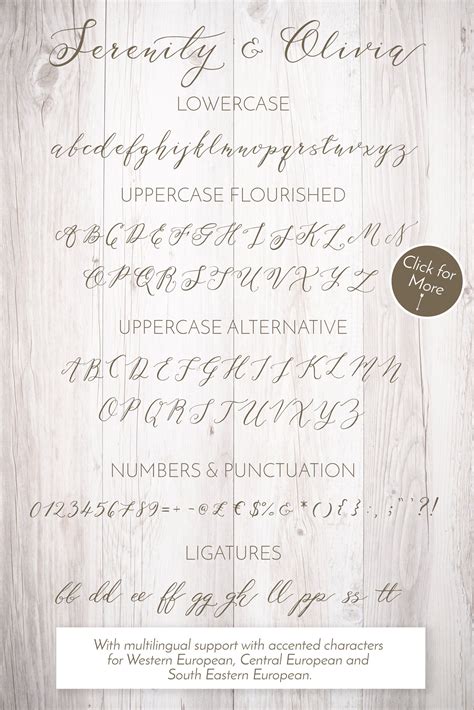 Serenity & Olivia
LOWERCASE
abcdefghijklmnopqrstuvwxyz
UPPERCASE FLOURISHED
ABCDEFGHIJKLMN
OPQRSTUVWXYZ
Click for
More
UPPERCASE ALTERNATIVE
ABCDEFGHIJKLMN
OPQRSTUVWXYZ
NUMBERS & PUNCTUATION
0123456789=+-@£€$%&*(){}:,;"'?!
LIGATURES
bb dd ee ff gg gh ll pp ss tt
With multilingual support with accented characters
for Western European, Central European and
South Eastern European.